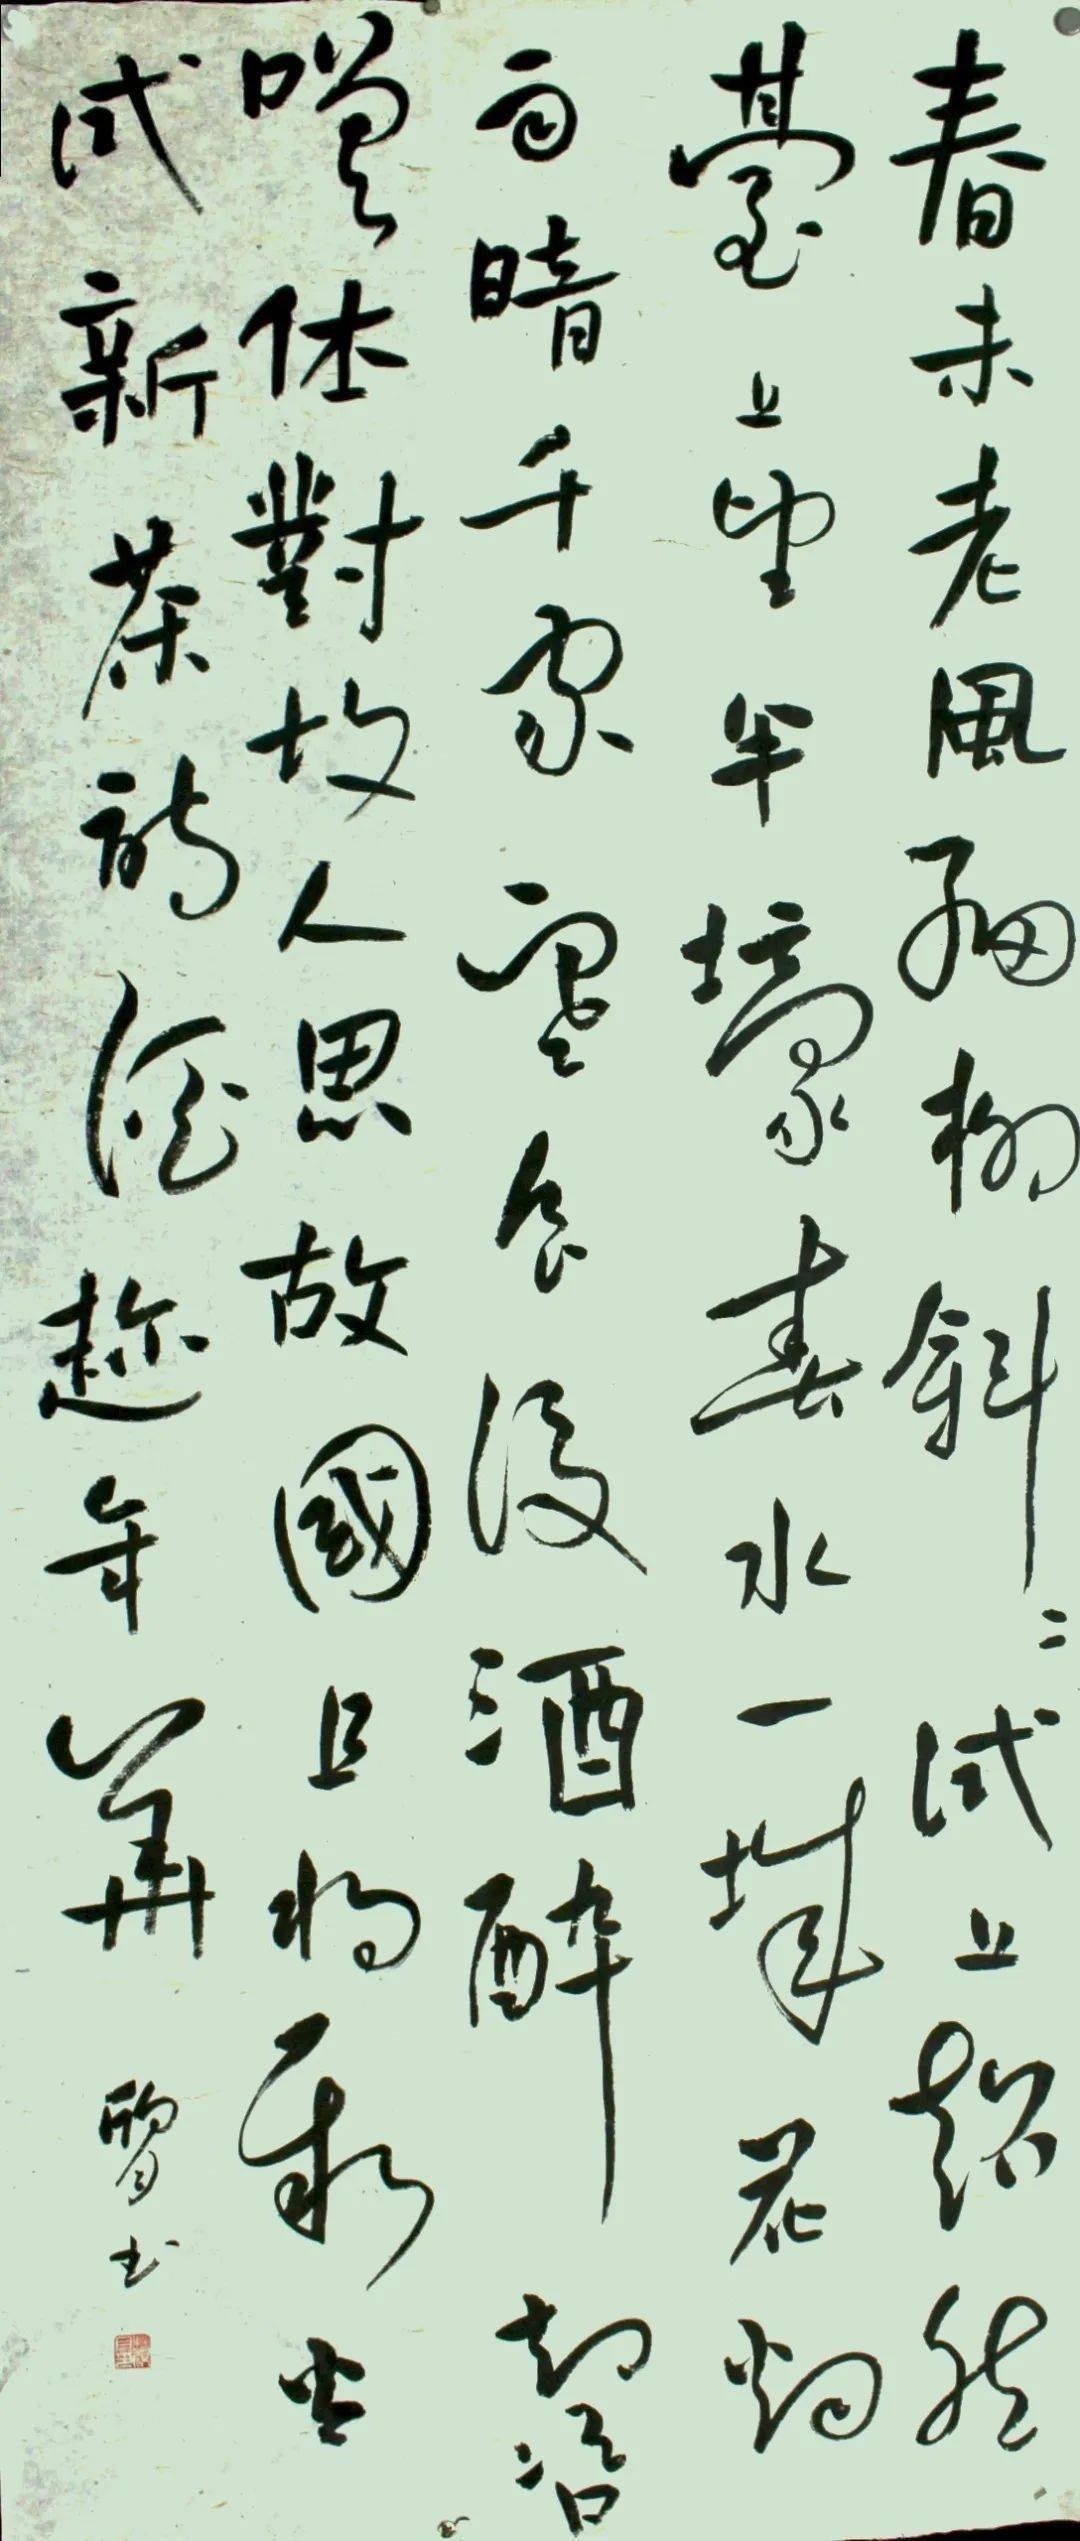 春未老風細柳斜〻試上超然
臺上望半壕春水一城花烟
雨暗千家寒食後酒醉却咨
嗟休對故人思故國且將新火
試新茶詩酒趁年華 書